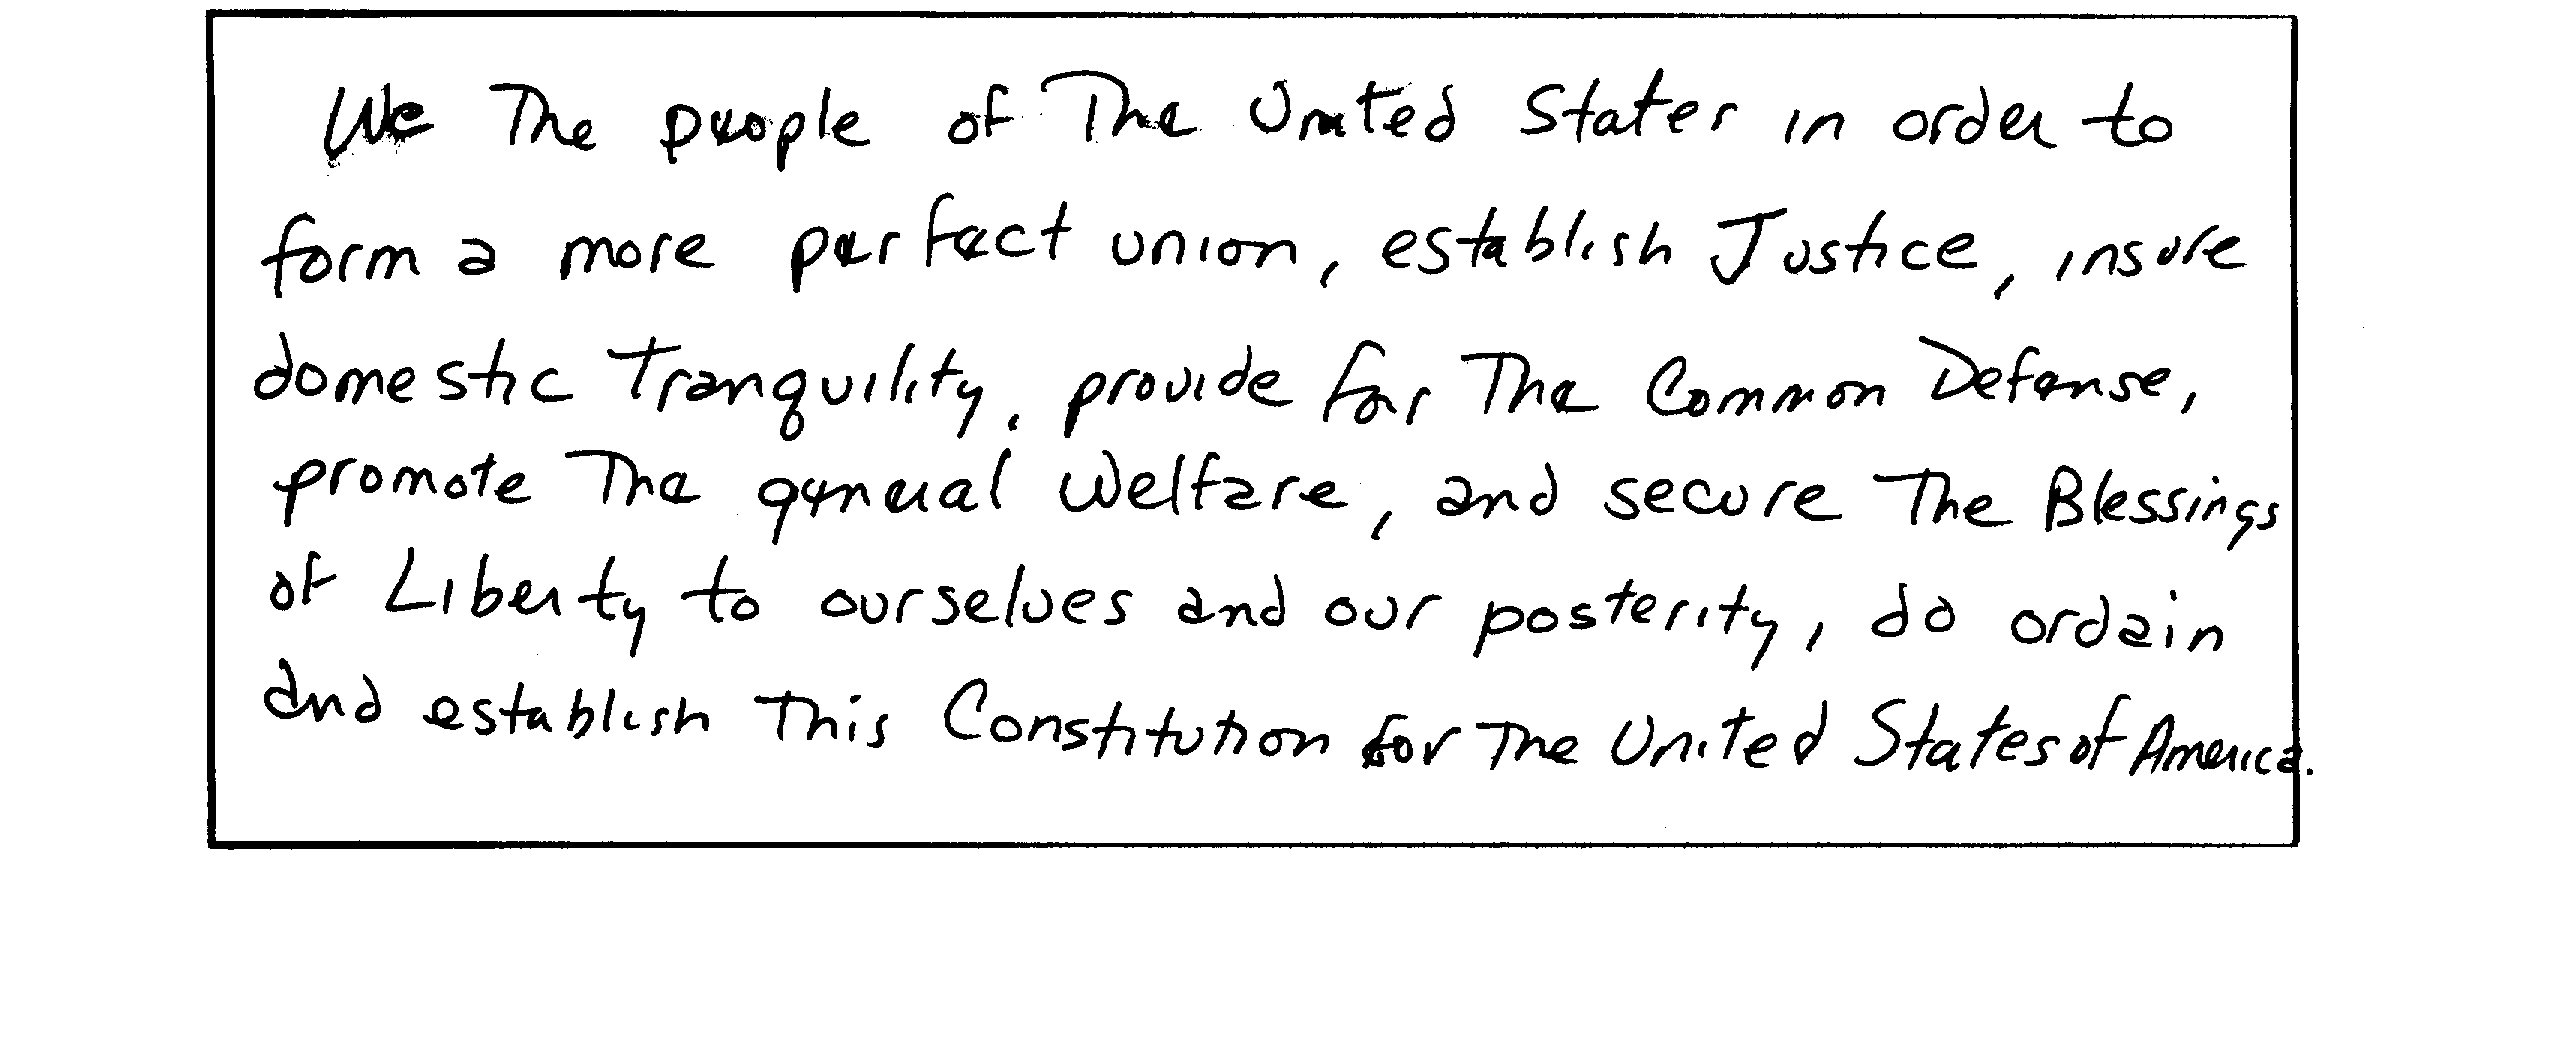 We The people of The United States in order to
form a more perfect union, establish Justice, insure
domestic Tranquility, provide for The Common Defense,
promote The general Welfare, and secure The Blessings
of Liberty to ourselves and our posterity, do ordain
and establish This Constitution for The United States of America.